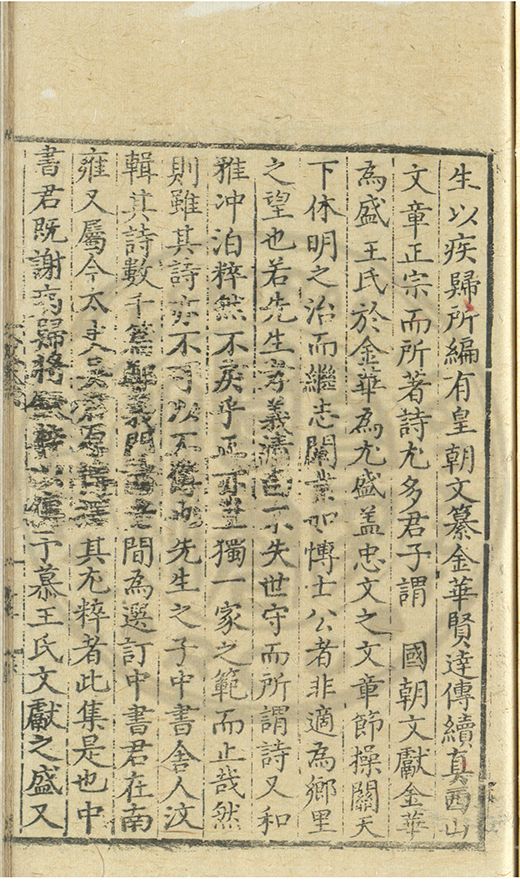 生以疾歸所編有皇朝文纂金華賢達傳續真西山
文章正宗而所著詩尤多君子謂　國朝文獻金華
為盛王氏於金華為尤盛盖忠文之文章節操關天
下休明之治而繼志闡業如博士公者非適為鄉里
之望也若先生忠義清白不失世守而所謂詩又和
雅冲泊粹然不戾乎正亦豈獨一家之範而止哉然
則雖其詩亦不可以不傳也先生之子中書舍人汶
輯其詩數千篇間為選訂中書君在南
雍又屬今太史其尤粹者此集是也中
書君既謝病歸將以予慕王氏文獻之盛又